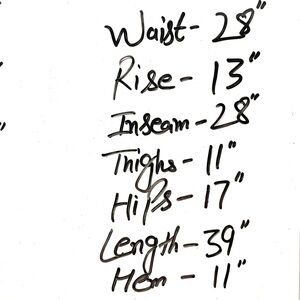 Waist - 28"
Rise - 13"
Inseam - 28"
Thighs - 11"
Hips - 17"
Length - 39"
Hem - 11"